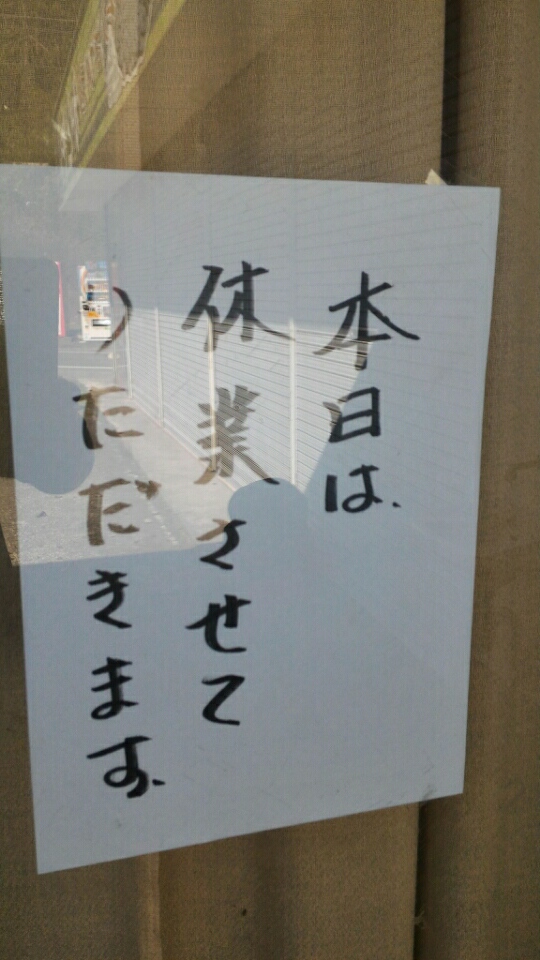 本日は、
休業させて
いただきます。